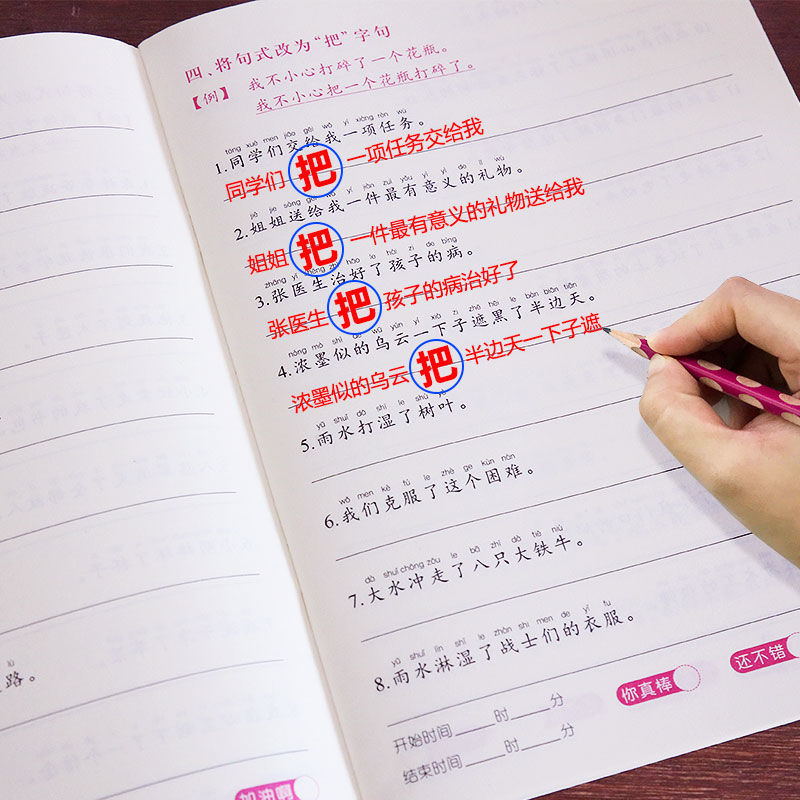 四、将句式改为“把”字句
【例】 我不小心打碎了一个花瓶。
我不小心把一个花瓶打碎了。
tóng xué men jiāo gěi wǒ yí xiàng rèn wù
1.同学们交给我一项任务。
同学们 把 一项任务交给我
jiě jie sòng gěi wǒ yí jiàn zuì yǒu yì yì de lǐ wù
2.姐姐送给我一件最有意义的礼物。
姐姐 把 一件最有意义的礼物送给我
zhāng yī shēng zhì hǎo le hái zi de bìng
3.张医生治好了孩子的病。
张医生 把 孩子的病治好了
nóng mò shì de wū yún yí xià zi zhē hēi le bàn biān tiān
4.浓墨似的乌云一下子遮黑了半边天。
浓墨似的乌云 把 半边天一下子遮
yǔ shuǐ dǎ shī le shù yè
5.雨水打湿了树叶。
wǒ men kè fú le zhè ge kùn nán
6.我们克服了这个困难。
dà shuǐ chōng zǒu le bā zhī dà tiě niú
7.大水冲走了八只大铁牛。
yǔ shuǐ lín shī le zhàn shì men de yī fu
8.雨水淋湿了战士们的衣服。
开始时间____时____分
结束时间____时____分
你真棒
还不错
lù
路。
加油啊